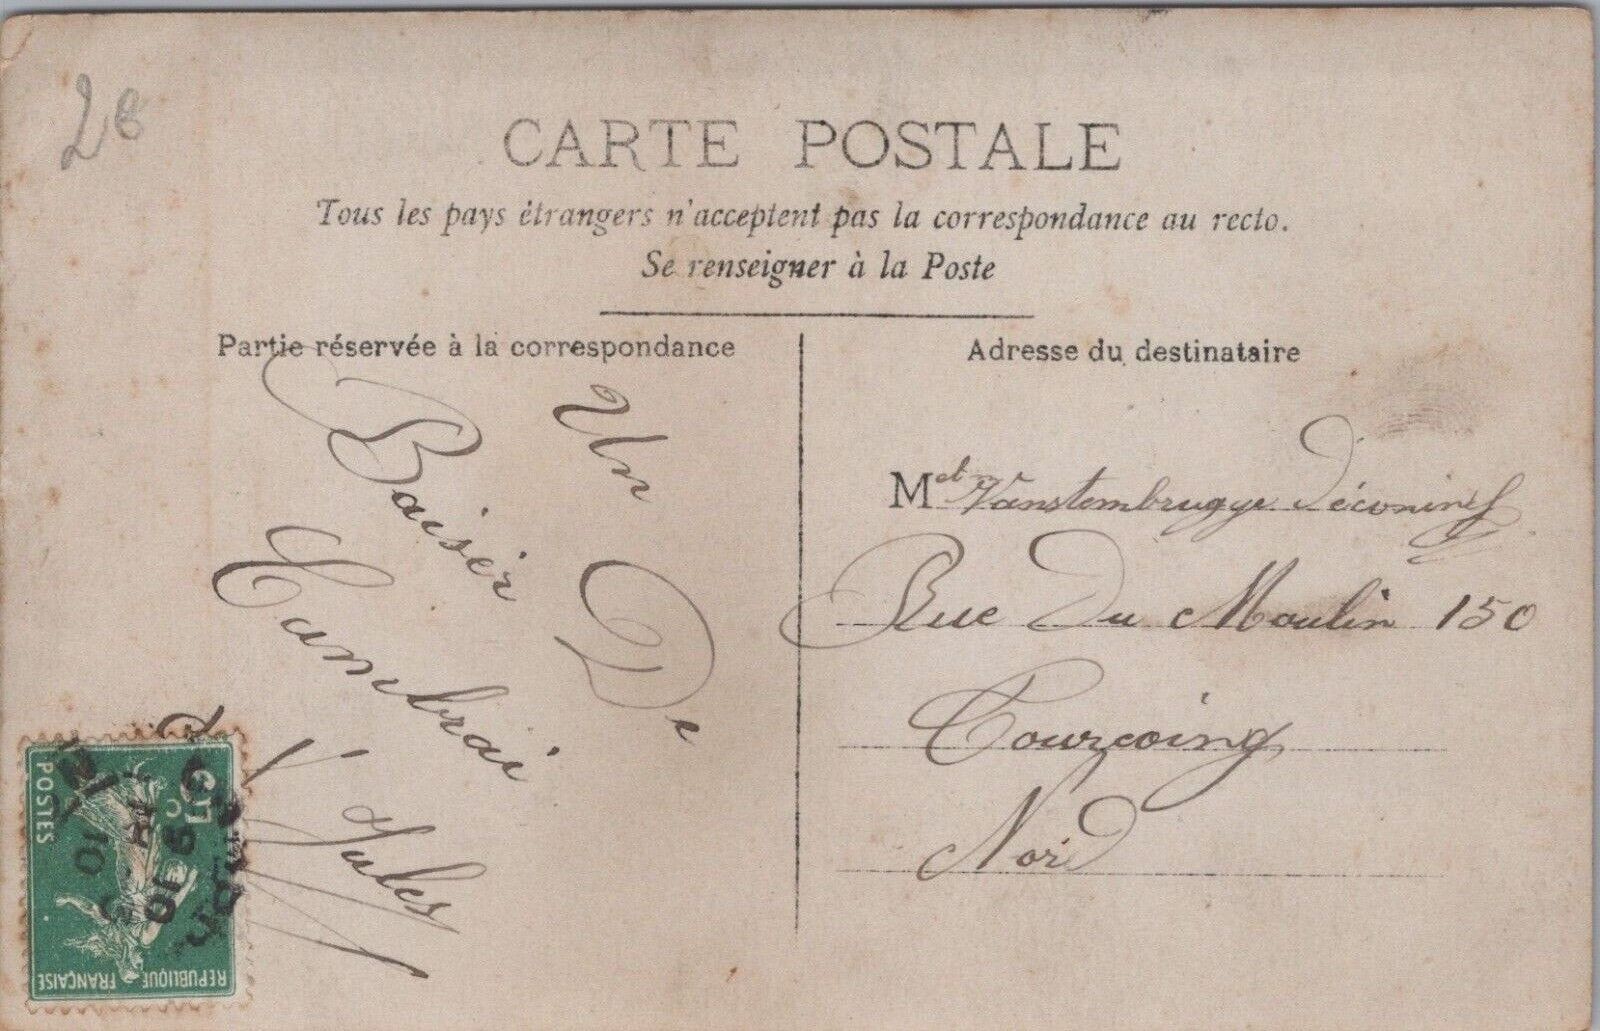 28
CARTE POSTALE
Tous les pays étrangers n'acceptent pas la correspondance au recto.
Se renseigner à la Poste
Partie réservée à la correspondance
Un
Baiser De
Cambrai
V. Jules
Adresse du destinataire
Met Vanstembrugge Déconinck
Rue Du Moulin 150
Tourcoing
Nord
POSTES
5c
REPUBLIQUE FRANÇAISE